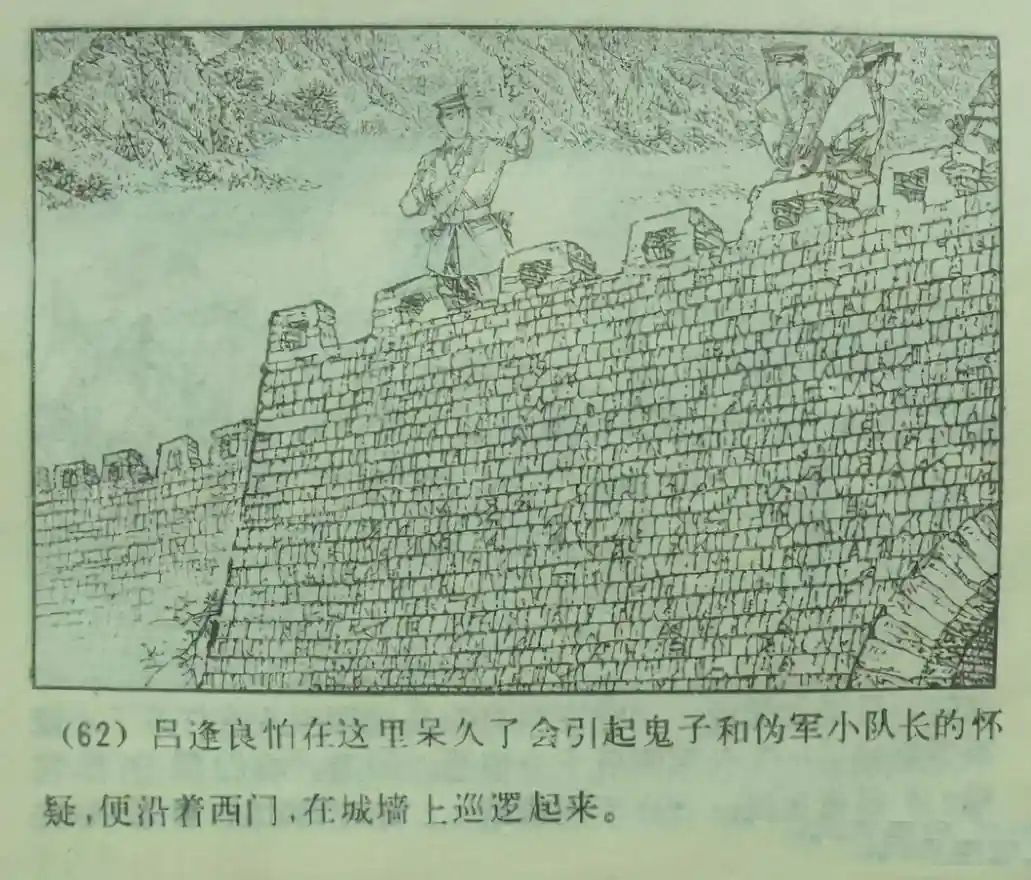 (62) 吕逢良怕在这里呆久了会引起鬼子和伪军小队长的怀
疑,便沿着西门,在城墙上巡逻起来。